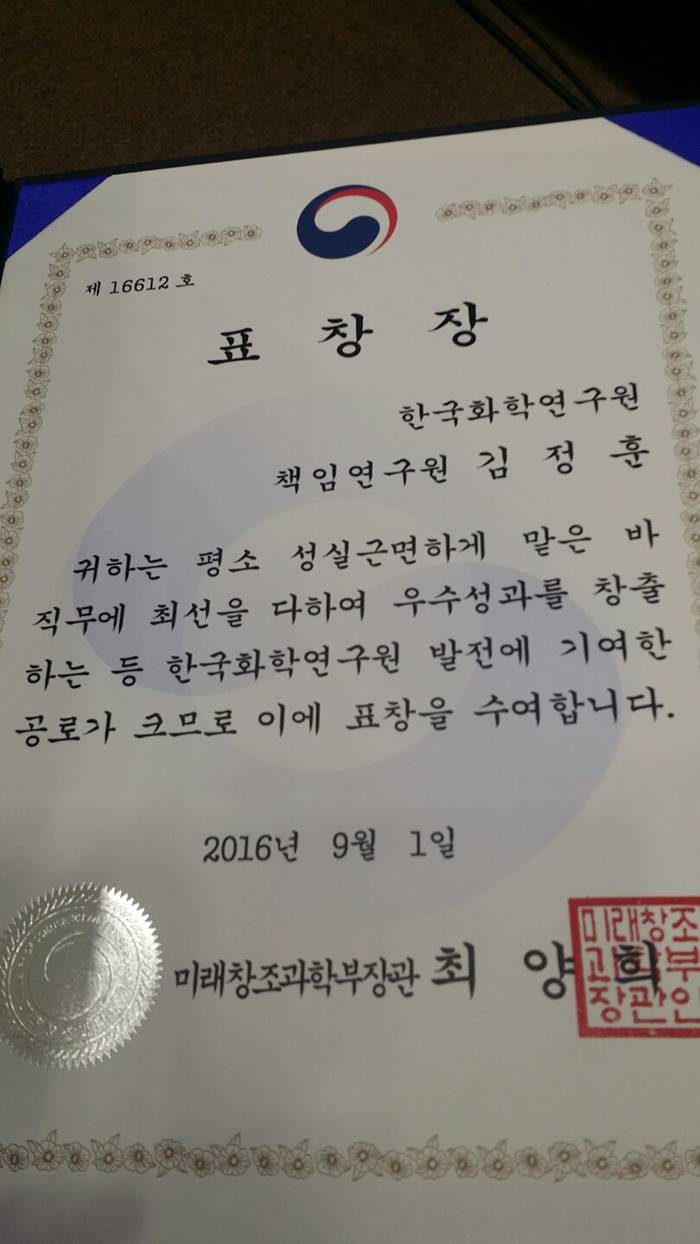 제 16612 호
표 창 장
한국화학연구원
책임연구원 김 정 훈
귀하는 평소 성실근면하게 맡은 바
직무에 최선을 다하여 우수성과를 창출
하는 등 한국화학연구원 발전에 기여한
공로가 크므로 이에 표창을 수여합니다.
2016년 9월 1일
미래창조과학부장관 최 양 희
미래창조
과학부
장관인